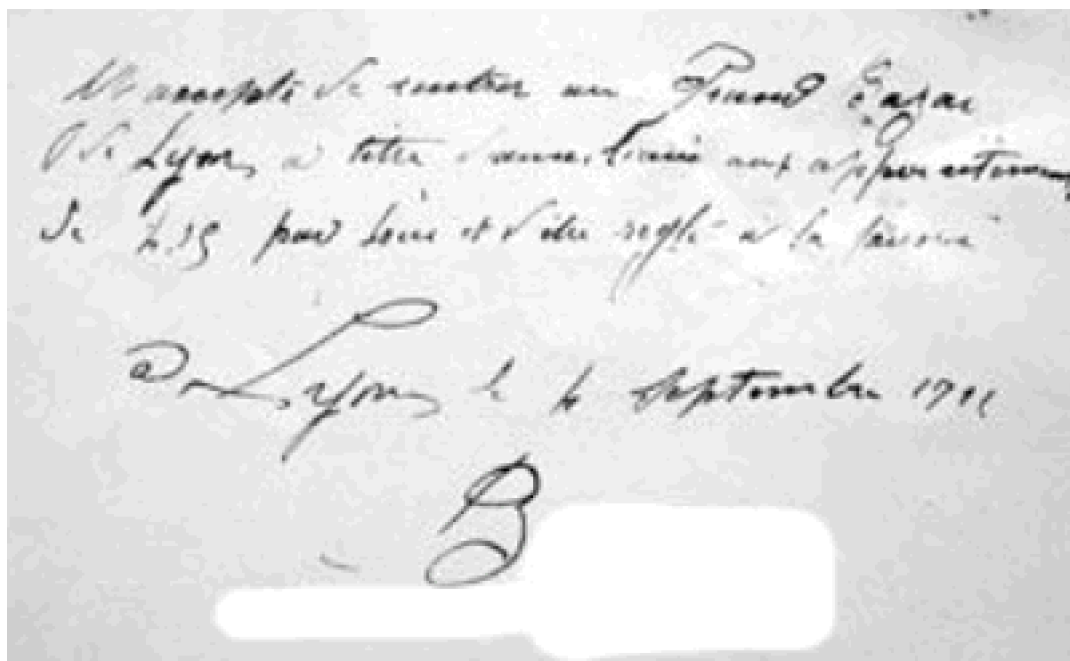 accepte de rentrer au Grand Bazar
de Lyon à titre d'auxiliaire aux appointements
de 4.15 par jour et d'être réglé à la
Lyon le 4 Septembre
B